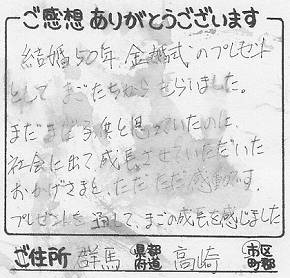 ご感想ありがとうございます
結婚50年 金婚式のプレゼント
として まごたちから もらいました。
まだまだ子供と思っていたのは
社会に出て成長させていただいた
おかげさまと、ただただ感動です。
プレゼントを通して、まごの成長を感じました
ご住所 群馬 都道府県 高崎 市区町郡